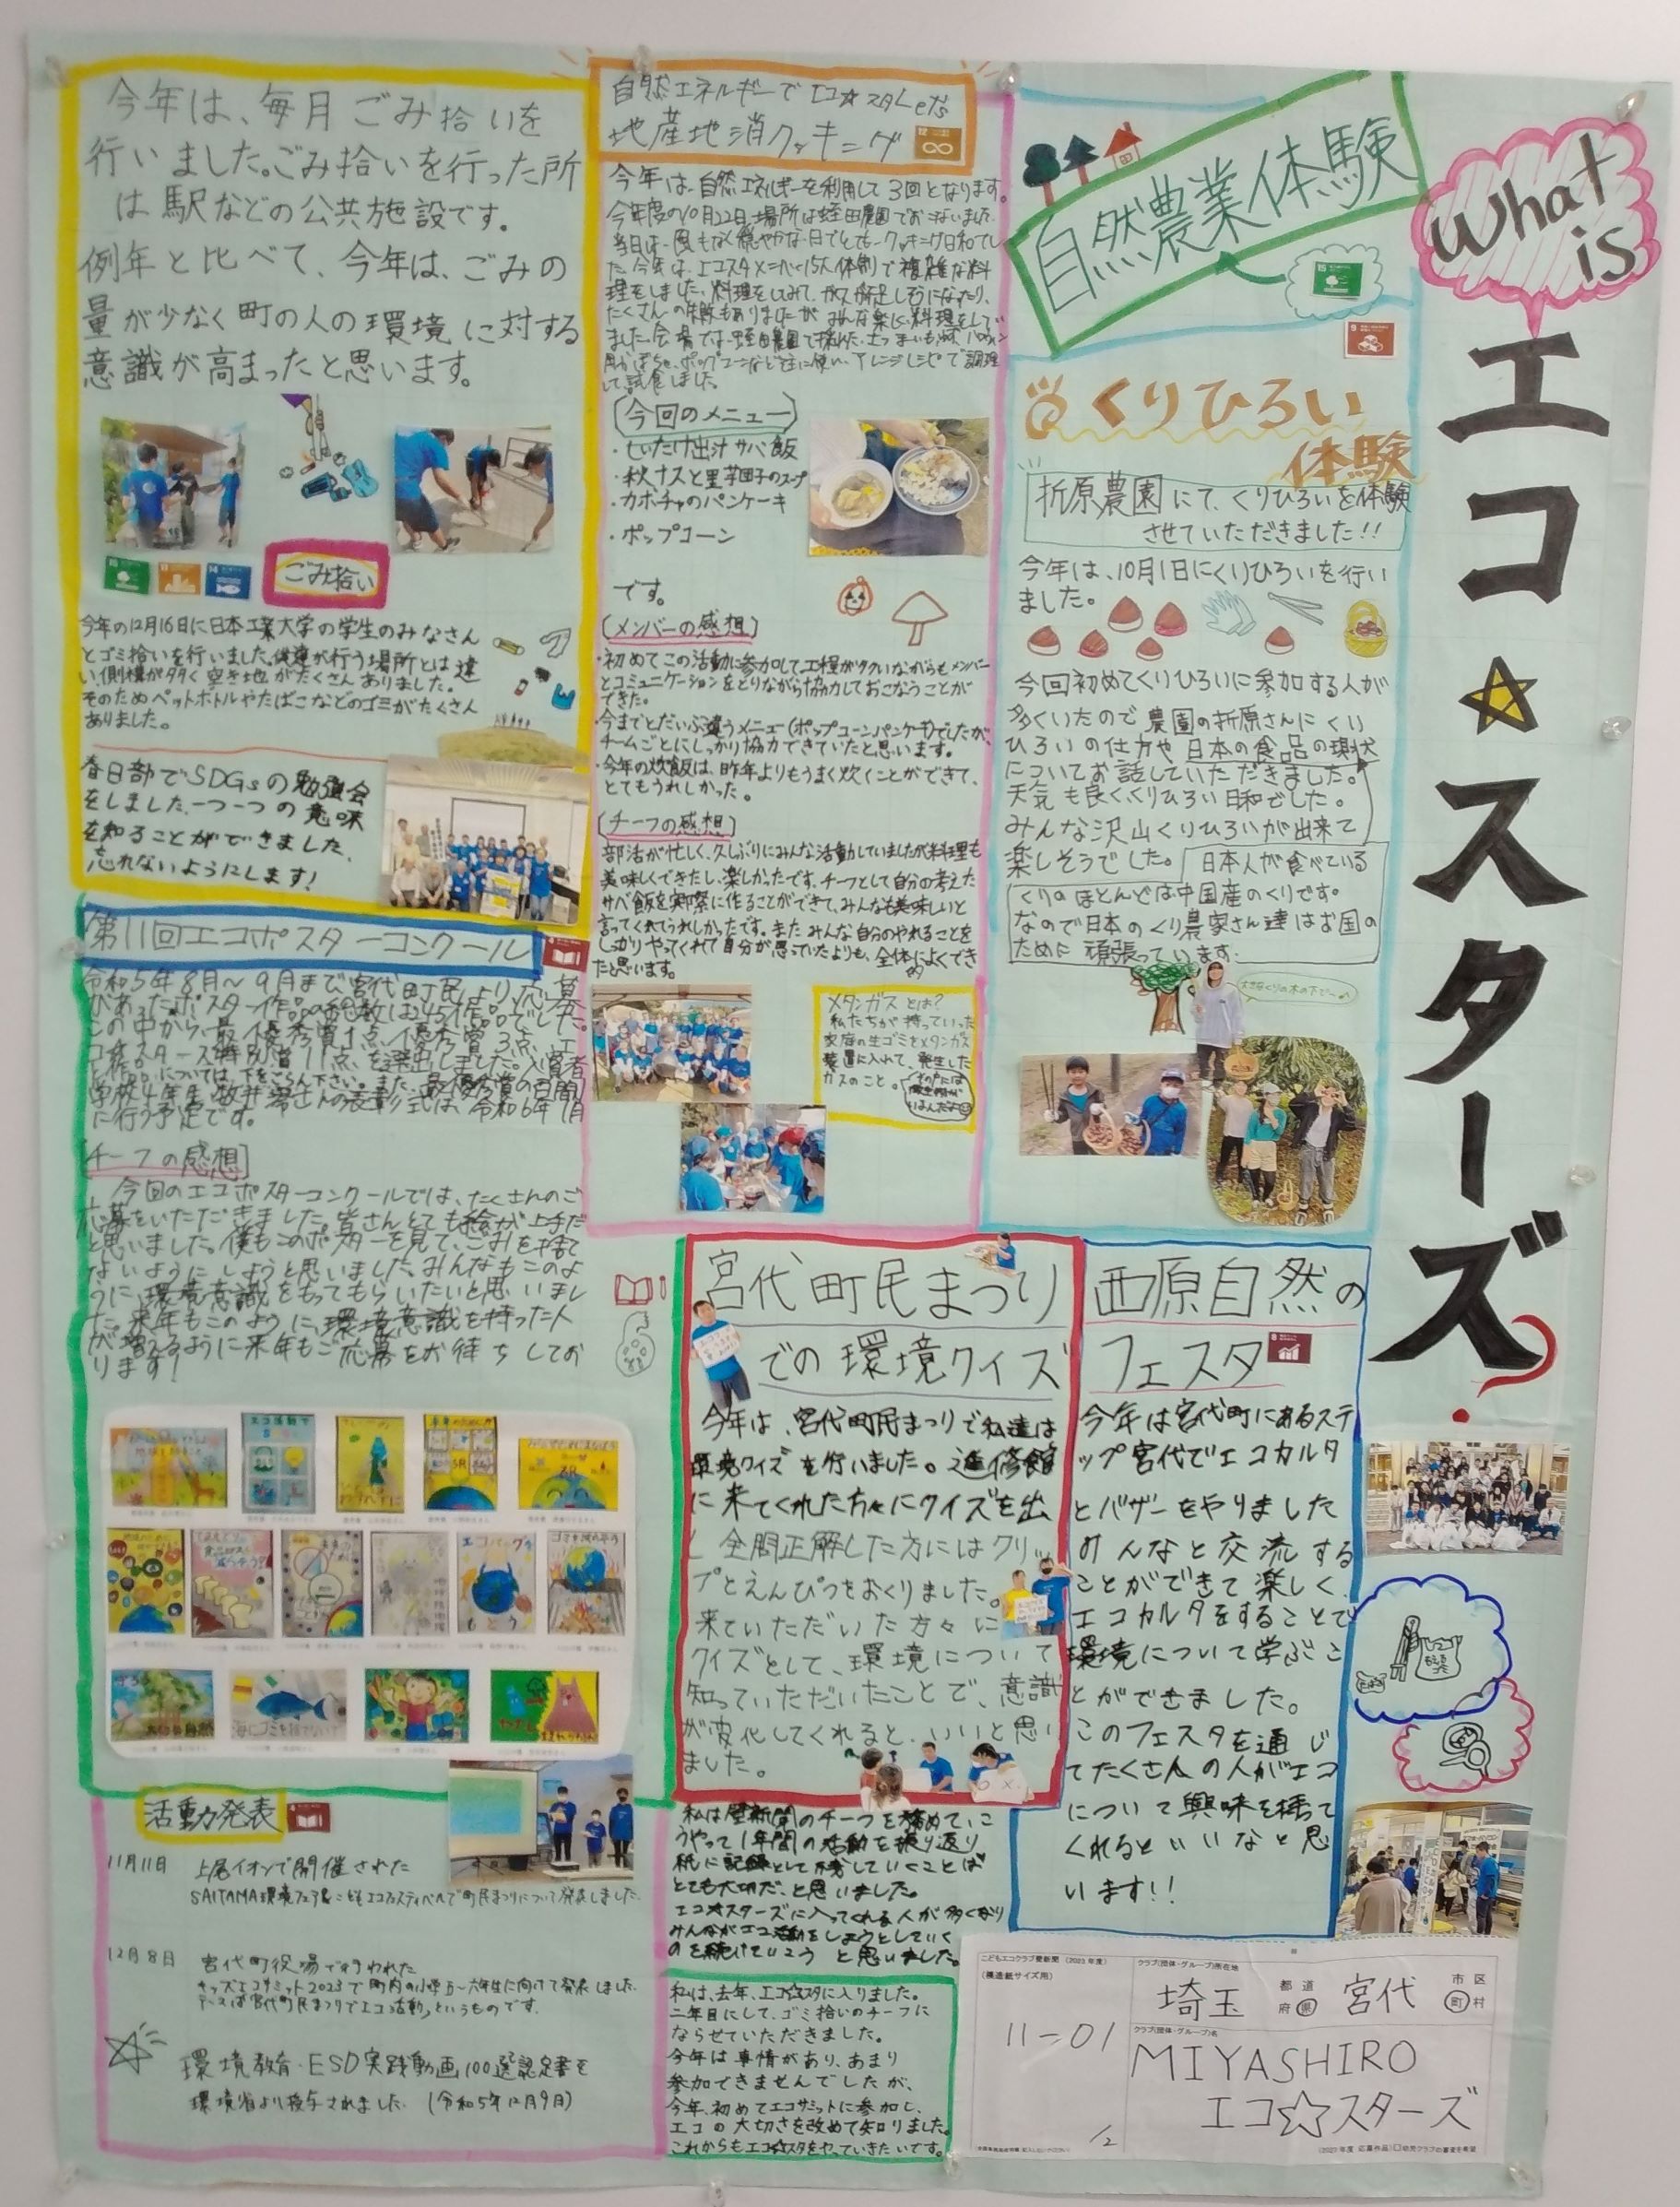 What is
エコ☆スターズ?
自然農業体験
くりひろい
体験
折原農園にて、くりひろいを体験
させていただきました!!
今年は、10月1日にくりひろいを行い
ました。
今回初めてくりひろいに参加する人が
多くいたので農園の折原さんにくり
ひろいの仕方や日本の食品の現状
についてお話していただきました。
天気も良く、くりひろい日和でした。
みんな沢山くりひろいが出来て
楽しそうでした。
日本人が食べている
くりのほとんどは中国産のくりです。
なので日本のくり農家さん達はお国の
ために頑張っています。
自然エネルギーでエコ☆スタLet's
地産地消クッキング
今年は、自然エネルギーを利用して3回となります。
今年度の10月22日、場所は蛭田農園でおこないました。
当日は、風もなく穏やかな日でとてもクッキング日和でし
た。今年は、エコスタメンバー15人体制で複雑な料
理をしました。料理をしてみて、ガスが不足しそうになったり、
たくさんの失敗もありましたが みんな楽しく料理をして
ました。会場では、蛭田農園で採れた、さつまいも
かぼちゃ、ポップコーンなどを主に使い、アレンジレシピで調理
して試食しました。
(今回のメニュー)
・しいたけ出汁サバ飯
・秋ナスと里芋団子のスープ
・カボチャのパンケーキ
・ポップコーン
です。
(メンバーの感想)
・初めてこの活動に参加して工程が多いながらもメンバー
とコミュニケーションをとりながら協力しておこなうことが
できた。
・今までとだいぶ違うメニュー(ポップコーンパンケーキ)でしたが、
チームごとにしっかり協力できていたと思います。
・今年の炊飯は、昨年よりもうまく炊くことができて、
とてもうれしかった。
(チーフの感想)
部活が忙しく、久しぶりにみんな活動していましたが料理も
美味しくできたし、楽しかったです。チーフとして自分の考えた
サバ飯を実際に作ることができて、みんなも美味しいと
言ってくれてうれしかったです。またみんな自分のやれることを
しっかりやってくれて自分が思っていたよりも、全体的によくでき
たと思います。
メタンガスとは?
私たちが持っていった
家庭の生ゴミをメタンガス
装置に入れて、発生した
ガスのこと。
今年は、毎月ごみ拾いを
行いました。ごみ拾いを行った所
は駅などの公共施設です。
例年と比べて、今年は、ごみの
量が少なく町の人の環境に対する
意識が高まったと思います。
ごみ拾い
今年の12月16日に日本工業大学の学生のみなさん
とゴミ拾いを行いました。僕達が行う場所とは違
い側槽が多く空き地がたくさんありました。
そのためペットボトルやたばこなどのゴミがたくさん
ありました。
春日部でSDGsの勉強会
をしました。一つ一つの意味
を知ることができました。
忘れないようにします!
第11回エコポスターコンクール
令和5年8月~9月まで宮代町民より応募
があったポスター作品の総数は245作品でした。
この中から、最優秀賞1点、優秀賞3点、エ
コ☆スターズ特別賞11点を選出しました。入賞者
と作品については下をごらん下さい。また、最優秀賞の百間小
学校4年生さんの表彰式は、令和6年1月
に行う予定です。
[チーフの感想]
今回のエコポスターコンクールでは、たくさんのご
応募をいただきました。皆さんとても絵が上手だ
と思いました。僕もこのポスターを見て、ごみを捨て
ないようにしようと思いました。みんなもこのよ
うに、環境意識をもってもらいたいと思いまし
た。来年もこのように、環境意識を持った人
が増えるように来年もご応募をお待ちしてお
ります!
宮代町民まつり
での環境クイズ
今年は、宮代町民まつりで私達は
環境クイズを行いました。進修館
に来てくれた方々にクイズを出
し全問正解した方にはクリッ
プとえんぴつをおくりました。
来ていただいた方々に
クイズとして、環境について
知っていただいたことで、意識
が変化してくれると、いいと思い
ました。
西原自然の
フェスタ
今年は宮代町にあるステ
ップ宮代でエコカルタ
とバザーをやりました
みんなと交流する
ことができて楽しく、
エコカルタをすることで
環境について学ぶこ
とができました。
このフェスタを通じ
てたくさんの人がエコ
について興味を持って
くれるといいなと思
います!!
活動発表
11月11日 上尾イオンで開催された
SAITAMA環境フェア&こどもエコフェスティバルで町民まつりについて発表しました。
12月8日 宮代町役場で行われた
キッズエコサミット2023で町内の小学五~六年生に向けて発表しました。
テーマは宮代町民まつりでエコ活動というものです。
環境教育・ESD実践動画100選認定書を
環境省より授与されました。(令和5年12月9日)
私は壁新聞のチーフを務めて、こ
うやって1年間の活動を振り返り
紙に記録として残していくことは
とても大切だ、と思いました。
エコ☆スターズに入ってくれる人が多くなり
みんながエコ活動をしようとしていく
のを続けていこうと思いました。
私は、去年、エコ☆スタに入りました。
二年目にして、ゴミ拾いのチーフに
ならせていただきました。
今年は事情があり、あまり
参加できませんでしたが、
今年、初めてエコサミットに参加し、
エコの大切さを改めて知りました。
これからもエコ☆スタをやっていきたいです。
こどもエコクラブ壁新聞 (2023年度)
(模造紙サイズ用)
11-01
クラブ(団体・グループ)所在地
埼玉 都道府県 宮代 市区町村
クラブ(団体・グループ)名
MIYASHIRO
エコ☆スターズ